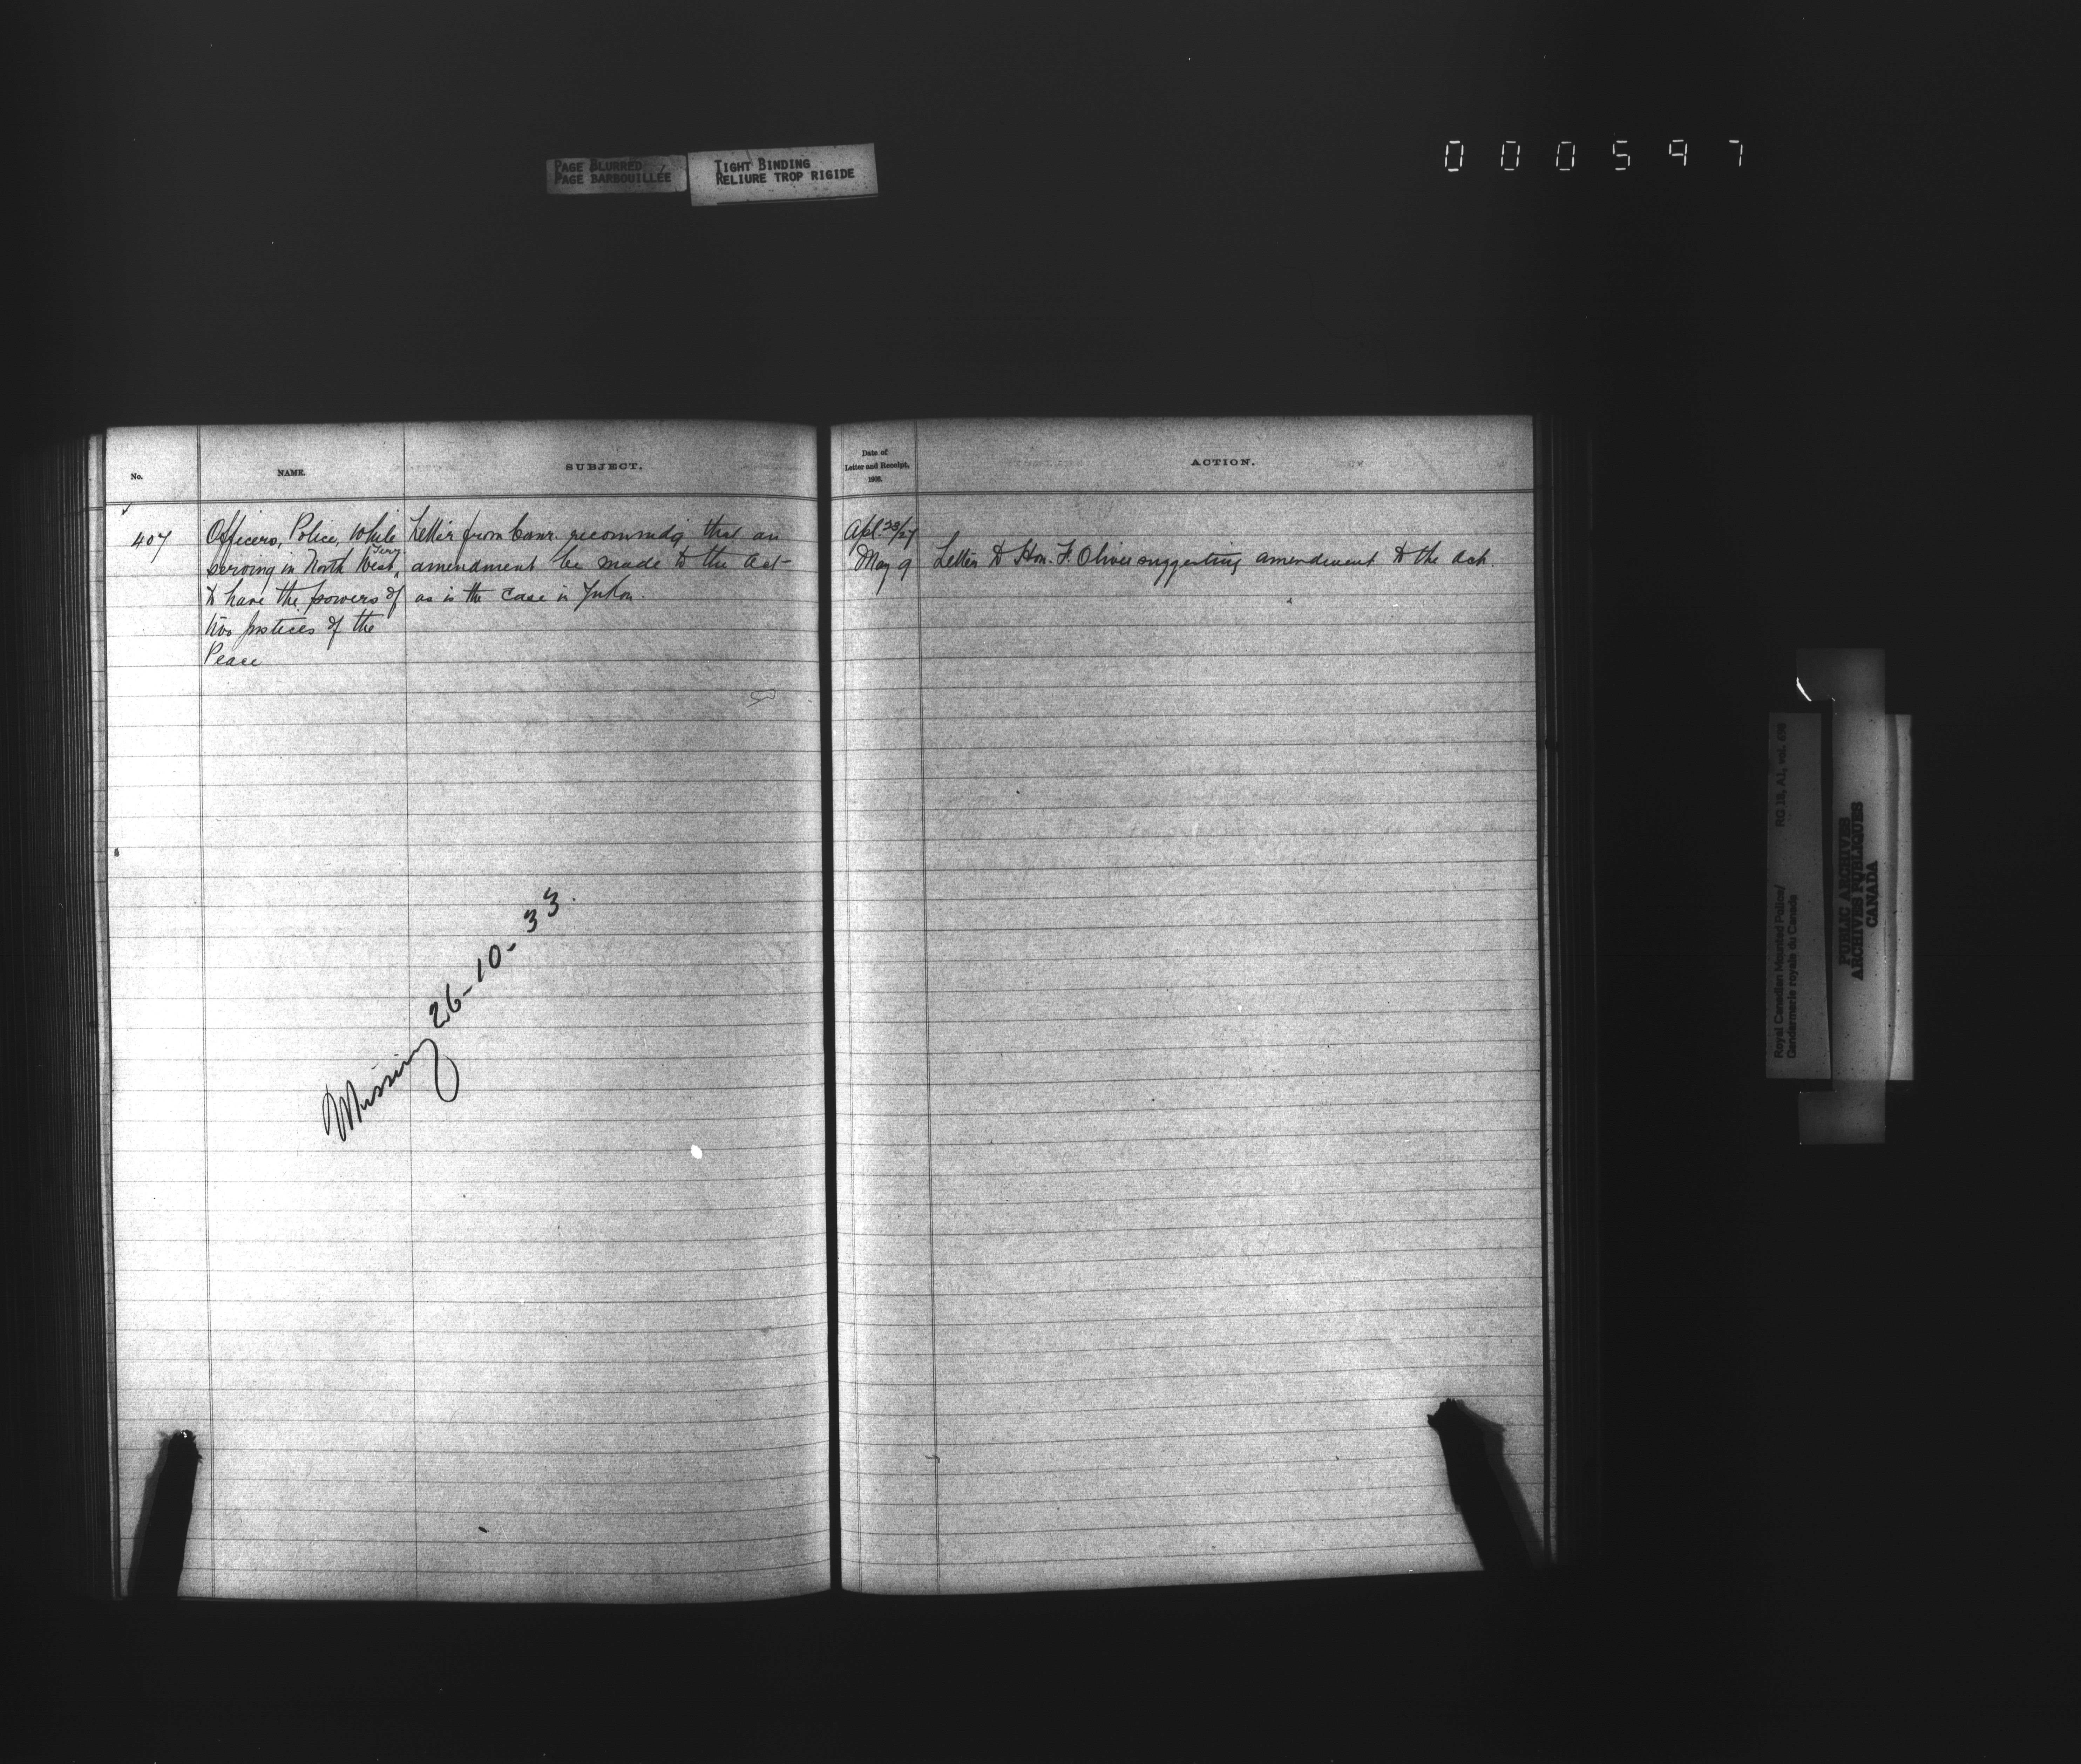 PAGE BLURRED
PAGE BARBOUILLÉE
TIGHT BINDING
RELIURE TROP RIGIDE
000597
No.
NAME.
SUBJECT.
407
Officers, Police, while
serving in North West Terry.
to have the powers of
two Justices of the
Peace
Letter from Comr. recommdg that an
amendment be made to the Act
as is the case in Yukon.
Missing 26-10-33.
Date of
Letter and Receipt,
1908.
ACTION.
Apl. 23/27
May 9
Letter to Hon. F. Oliver suggesting amendment to the Act.
Royal Canadian Mounted Police/
Gendarmerie royale du Canada
RG 18, A1, vol. 698
PUBLIC ARCHIVES
ARCHIVES PUBLIQUES
CANADA